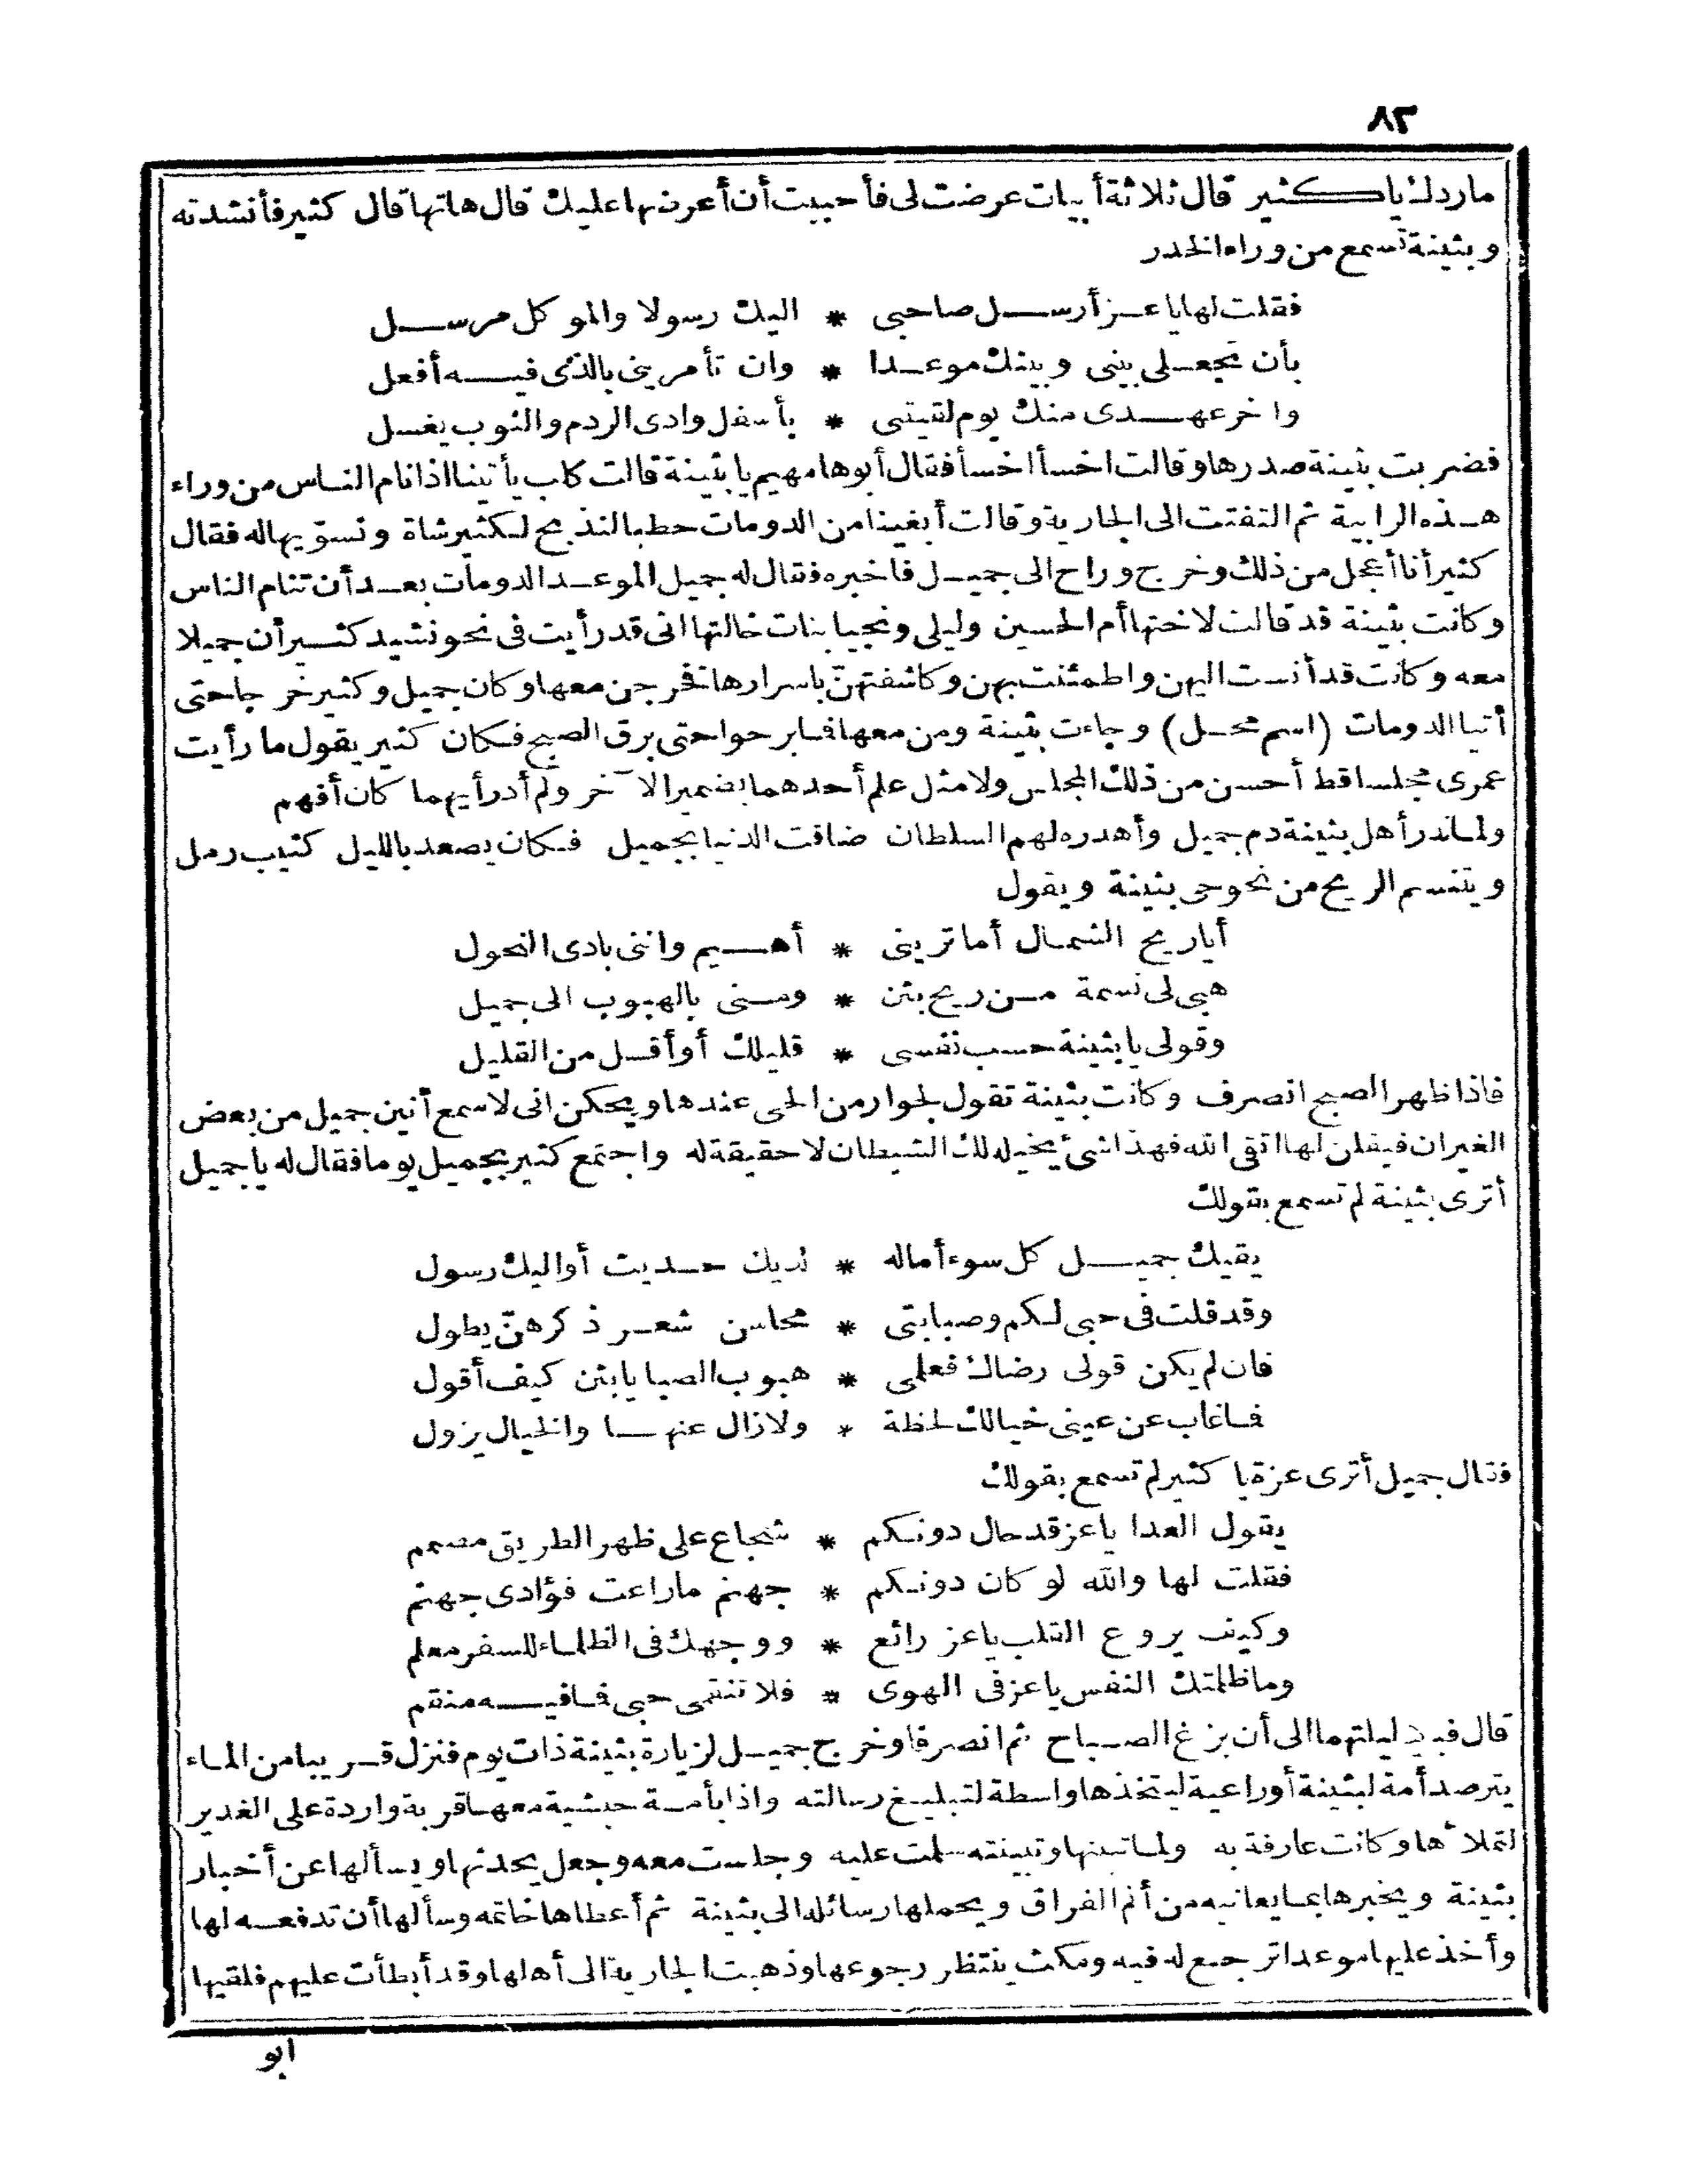 ٨٢
ماردك ياكثير قال ثلاثة أبيات عرضت لى فأحببت أن أعرضها عليك قال هاتها قال كثير فأنشدته
وبثينة تسمع من وراء الخدر
فقلت لها يا عز أرسل صاحبى * اليك رسولا والموكل مرسل
بأن تجعلى بينى وبينك موعدا * وان تأمرينى بالذى فيه أفعل
واخر عهدى منك يوم لقيتنى * بأسفل وادى الردم والثوب يغسل
فضربت بثينة صدرها وقالت اخسأ اخسأ فقال أبوها مهيم يا بثينة قالت كلب يأتينا اذا نام الناس من وراء
هذه الرابية ثم التفتت الى الجارية وقالت أبغينا من الدومات حطبا لنذبح لكثير شاة ونسويها له فقال
كثير أنا أعجل من ذلك وخرج وراح الى جميل فاخبره فقال له جميل الموعد الدومات بعد أن تنام الناس
وكانت بثينة قد قالت لاختها أم الحسين وليلى ونجيا بنات خالتها انى قد رأيت فى نحو نشيد كثير أن جميلا
معه وكانت قد أنست اليهن واطمئنت بهن وكاشفتهنّ باسرارها فخرجن معها وكان جميل وكثير خرجا حتى
أتيا الدومات (اسم محل) وجاءت بثينة ومن معها فما برحوا حتى برق الصبح فكان كثير يقول ما رأيت
عمرى مجلسا قط أحسن من ذلك المجلس ولا مثل علم أحدهما بضمير الآخر ولم أدر أيهما كان أفهم
ولما نذر أهل بثينة دم جميل وأهدره لهم السلطان ضاقت الدنيا بجميل فكان يصعد بالليل كثيب رمل
ويتنسم الريح من نحو حى بثينة ويقول
أيا ريح الشمال أما ترينى * أهيم واننى بادى النحول
هبى لى نسمة من ريح بثن * ومنى بالهبوب الى جميل
وقولى يا بثينة حسب نفسى * قليلك أو أقل من القليل
فاذا ظهر الصبح انصرف وكانت بثينة تقول لجوار من الحى عندها ويحكن انى لاسمع أنين جميل من بعض
الغيران فيقلن لها اتقى الله فهذا شئ يخيله لك الشيطان لا حقيقة له واجتمع كثير بجميل يوما فقال له يا جميل
أترى بثينة لم تسمع بقولك
يقيك جميل كل سوء أماله * لديك حديث أو اليك رسول
وقد قلت فى حبى لكم وصبابتى * محاسن شعر ذكرهنّ يطول
فان لم يكن قولى رضاك فعلمى * هبوب الصبا يا بثن كيف أقول
فما غاب عن عينى خيالك لحظة * ولا زال عنها والخيال يزول
فقال جميل أترى عزة يا كثير لم تسمع بقولك
يقول العدا يا عز قد حال دونكم * شجاع على ظهر الطريق مصمم
فقلت لها والله لو كان دونكم * جهنم ما راعت فؤادى جهنم
وكيف يروع القلب يا عز رائع * ووجهك فى الظلماء للسفر معلم
وما ظلمتك النفس يا عز فى الهوى * فلا تنقمى حبى فما فيه منقم
قال ليلتهما الى أن بزغ الصباح ثم انصرفا وخرج جميل لزيارة بثينة ذات يوم فنزل قريبا من الماء
يترصد أمة لبثينة أو راعية ليتخذها واسطة لتبليغ رسالته واذا بأمة حبشية معها قربة واردة على الغدير
لتملأها وكانت عارفة به ولما تبينها وتبينته سلمت عليه وجلست معه وجعل يحدثها ويسألها عن أخبار
بثينة ويخبرها بما يعانيه من ألم الفراق ويحملها رسائله الى بثينة ثم أعطاها خاتمه وسألها أن تدفعه لها
وأخذ عليها موعدا ترجع له فيه ومكث ينتظر رجوعها وذهبت الجارية الى أهلها وقد أبطأت عليهم فلقيها
ابو